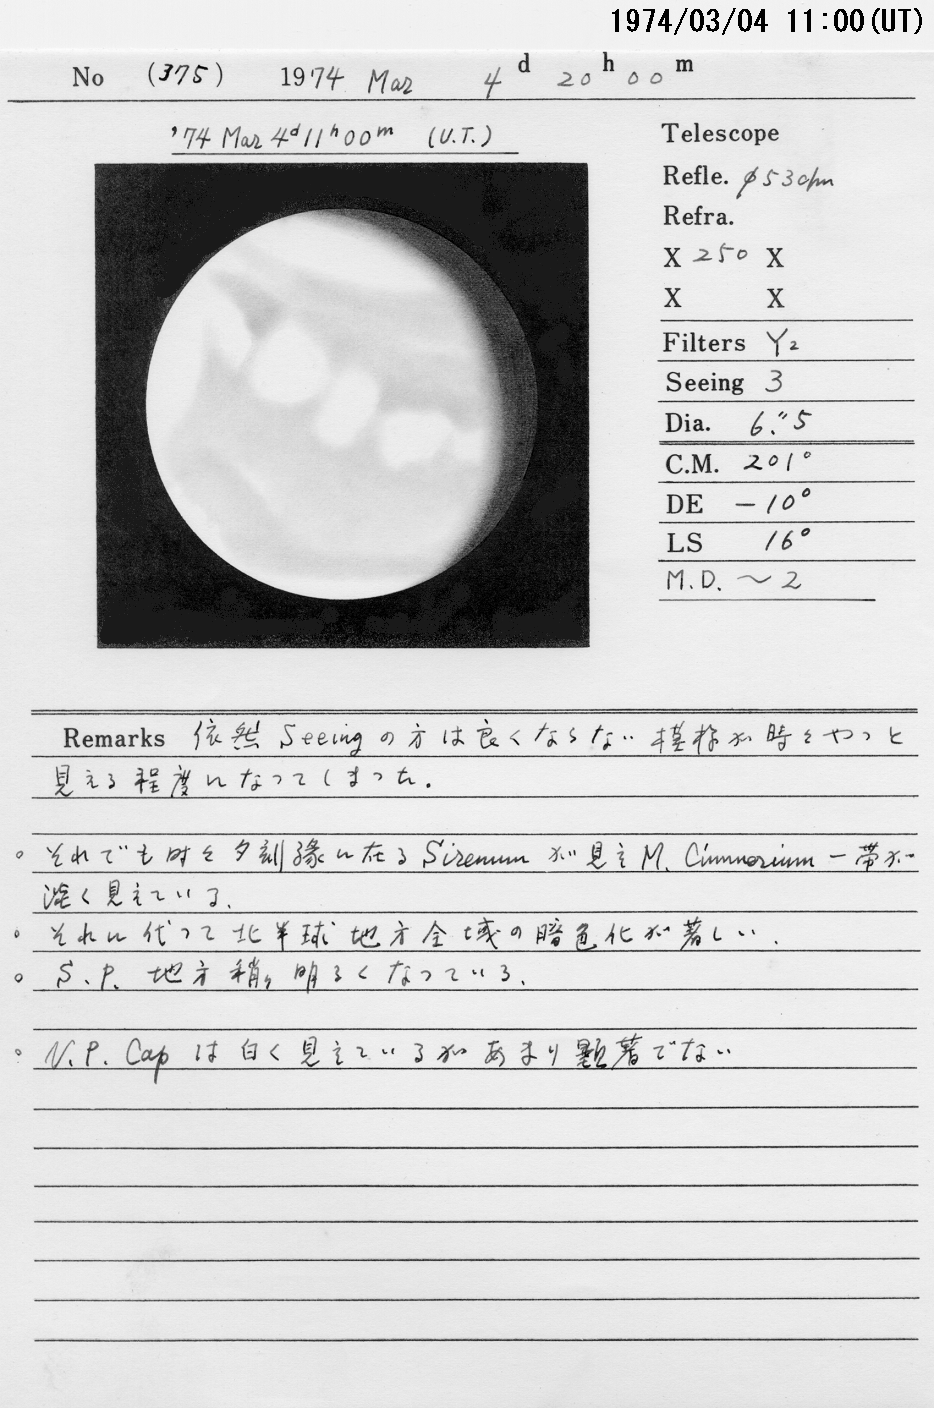 1974/03/04 11:00(UT)
No (375) 1974 Mar 4 d 20 h 00 m
'74 Mar 4d 11h 00m (U.T.)
Telescope
Refle. φ53cm
Refra.
X 250 X
X X
Filters Y2
Seeing 3
Dia. 6."5
C.M. 201°
DE -10°
LS 16°
M.D. ～2
Remarks 依然 Seeingの方は良くならない 模様が時々やっと
見える程度になってしまった.
○ それでも時々夕刻縁に在る Sirenumが見え M. Cimmerium一帯が
淡く見えている.
○ それに代って北半球地方全域の暗色化が著しい.
○ S.P. 地方稍々明るくなっている.
○ N.P. Capは白く見えているがあまり顕著でない